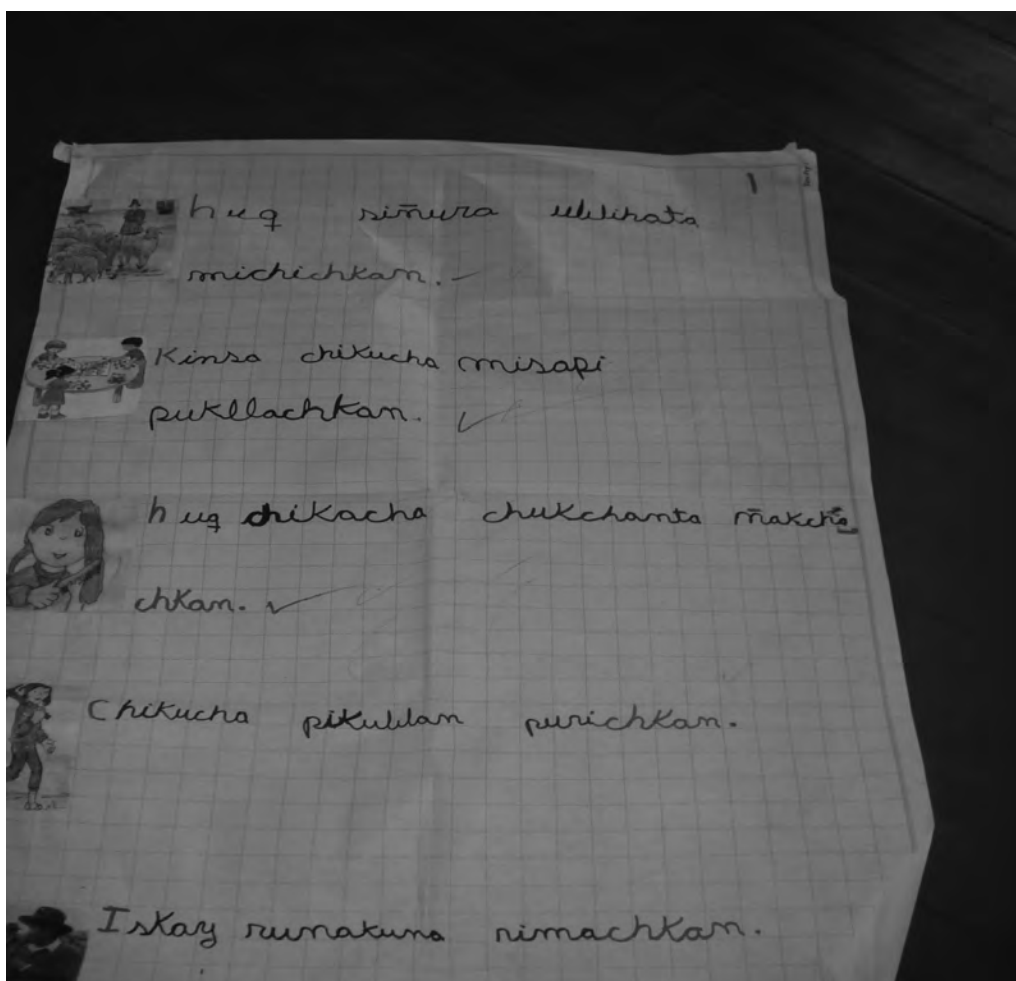 1
huq siñura ullihata
michichkan.
Kinsa chikucha misapi
pukllachkan.
huq chikacha chukchanta ñakcha
chkan.
Chikucha pikullan purichkan.
Iskay runakuna rimachkan.